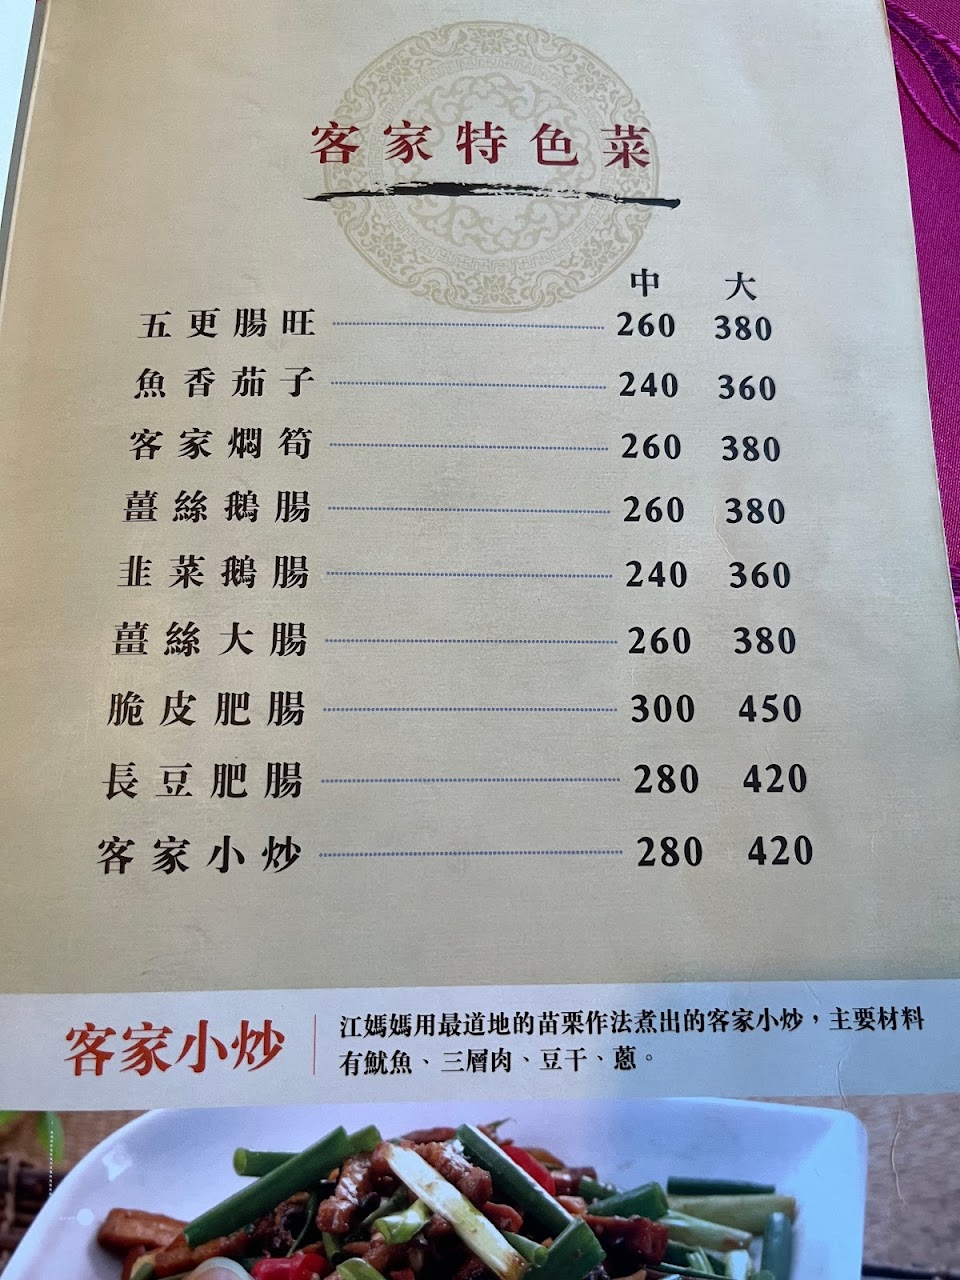 客家特色菜
中 大
五更腸旺 260 380
魚香茄子 240 360
客家燜筍 260 380
薑絲鵝腸 260 380
韭菜鵝腸 240 360
薑絲大腸 260 380
脆皮肥腸 300 450
長豆肥腸 280 420
客家小炒 280 420
客家小炒
江媽媽用最道地的苗栗作法煮出的客家小炒，主要材料
有魷魚、三層肉、豆干、蔥。